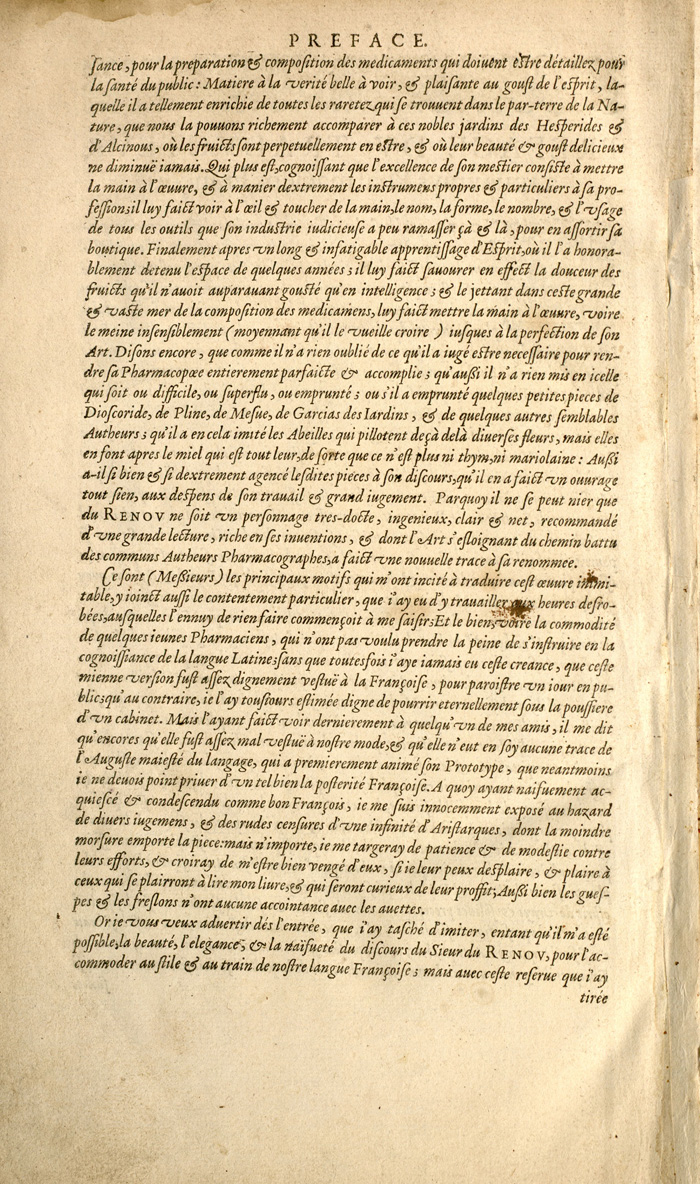 PREFACE.
ſance, pour la preparation & compoſition des medicaments qui doiuent eſtre détaillez pour
la ſanté du public : Matiere à la verité belle à voir, & plaiſante au gouſt de l'eſprit, la-
quelle il a tellement enrichie de toutes les raretez qui ſe trouuent dans le par-terre de la Na-
ture, que nous la pouuons richement accomparer à ces nobles jardins des Heſperides &
d'Alcinous, où les fruicts ſont perpetuellement en eſtre, & où leur beauté & gouſt delicieux
ne diminuë iamais. Qui plus eſt, cognoiſſant que l'excellence de ſon meſtier conſiſte à mettre
la main à l'œuure, & à manier dextrement les inſtrumens propres & particuliers à ſa pro-
feſſion; il luy faict voir à l'œil & toucher de la main, le nom, la forme, le nombre, & l'vſage
de tous les outils que ſon induſtrie iudicieuſe a peu ramaſſer çà & là, pour en aſſortir ſa
boutique. Finalement apres vn long & infatigable apprentiſſage d'Eſprit, où il l'a honora-
blement detenu l'eſpace de quelques années ; il luy faict ſauourer en effect la douceur des
fruicts qu'il n'auoit auparauant gouſté qu'en intelligence ; & le jettant dans ceſte grande
& vaſte mer de la compoſition des medicamens, luy faict mettre la main à l'œuure, voire
le meine inſenſiblement (moyennant qu'il le vueille croire ) iuſques à la perfection de ſon
Art. Diſons encore, que comme il n'a rien oublié de ce qu'il a iugé eſtre neceſſaire pour ren-
dre ſa Pharmacopœe entierement parfaicte & accomplie ; qu'auſſi il n'a rien mis en icelle
qui ſoit ou difficile, ou ſuperflu, ou emprunté ; ou s'il a emprunté quelques petites pieces de
Dioſcoride, de Pline, de Meſue, de Garcias des Iardins, & de quelques autres ſemblables
Autheurs ; qu'il a en cela imité les Abeilles qui pillotent deçà delà diuerſes fleurs, mais elles
en font apres le miel qui eſt tout leur, de ſorte que ce n'eſt plus ni thym, ni mariolaine : Auſſi
a-il ſi bien & ſi dextrement agencé leſdites pieces à ſon diſcours, qu'il en a faict vn ouurage
tout ſien, aux deſpens de ſon trauail & grand iugement. Parquoy il ne ſe peut nier que
du RENOV ne ſoit vn perſonnage tres-docte, ingenieux, clair & net, recommandé
d'vne grande lecture, riche en ſes inuentions, & dont l'Art s'eſloignant du chemin battu
des communs Autheurs Pharmacographes, a faict vne nouuelle trace à ſa renommee.
Ce ſont (Meſſieurs) les principaux motifs qui m'ont incité à traduire ceſt œuure inimi-
table, y ioinct auſſi le contentement particulier, que i'ay eu d'y trauailler aux heures deſro-
bées, auſquelles l'ennuy de rien faire commençoit à me ſaiſir; Et le bien, voire la commodité
de quelques ieunes Pharmaciens, qui n'ont pas voulu prendre la peine de s'inſtruire en la
cognoiſſance de la langue Latine; ſans que toutesfois i'aye iamais eu ceſte creance, que ceſte
mienne verſion fuſt aſſez dignement veſtuë à la Françoiſe, pour paroiſtre vn iour en pu-
blic; qu'au contraire, ie l'ay touſiours eſtimée digne de pourrir eternellement ſous la pouſſiere
d'vn cabinet. Mais l'ayant faict voir dernierement à quelqu'vn de mes amis, il me dit
qu'encores qu'elle fuſt aſſez mal veſtuë à noſtre mode, & qu'elle n'eut en ſoy aucune trace de
l'Auguſte maieſté du langage, qui a premierement animé ſon Prototype, que neantmoins
ie ne deuois point priuer d'vn tel bien la poſterité Françoiſe. A quoy ayant naifuement ac-
quieſcé & condeſcendu comme bon François, ie me ſuis innocemment expoſé au hazard
de diuers iugemens, & des rudes cenſures d'vne infinité d'Ariſtarques, dont la moindre
morſure emporte la piece: mais n'importe, ie me targeray de patience & de modeſtie contre
leurs efforts, & croiray de m'eſtre bien vengé d'eux, ſi ie leur peux deſplaire, & plaire à
ceux qui ſe plairront à lire mon liure, & qui ſeront curieux de leur proffit; Auſſi bien les gueſ-
pes & les freſlons n'ont aucune accointance auec les auettes.
Or ie vous veux aduertir dés l'entrée, que i'ay taſché d'imiter, entant qu'il m'a eſté
poſſible, la beauté, l'elegance, & la naïfueté du diſcours du Sieur du RENOV, pour l'ac-
commoder au ſtile & au train de noſtre langue Françoiſe ; mais auec ceſte reſerue que i'ay
tirée